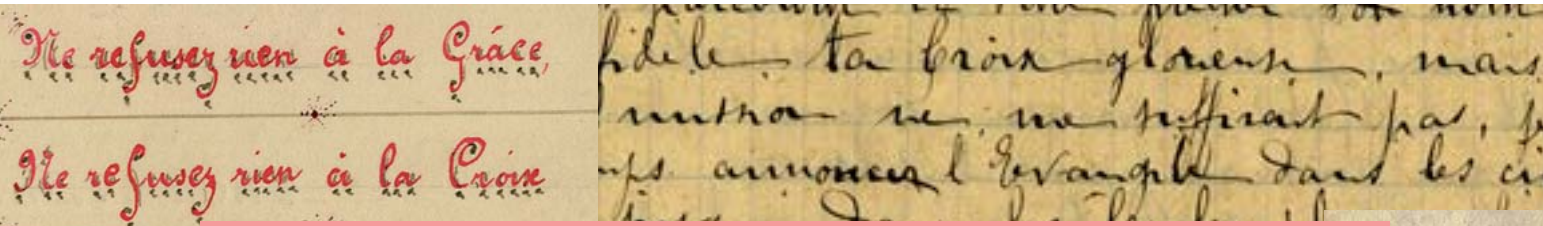 Ne refusez rien à la Grâce,
Ne refusez rien à la Croix
fidèle ta Croix glorieuse, mais
mission ne me suffirait pas,
mps annoncer l'Evangile dans les